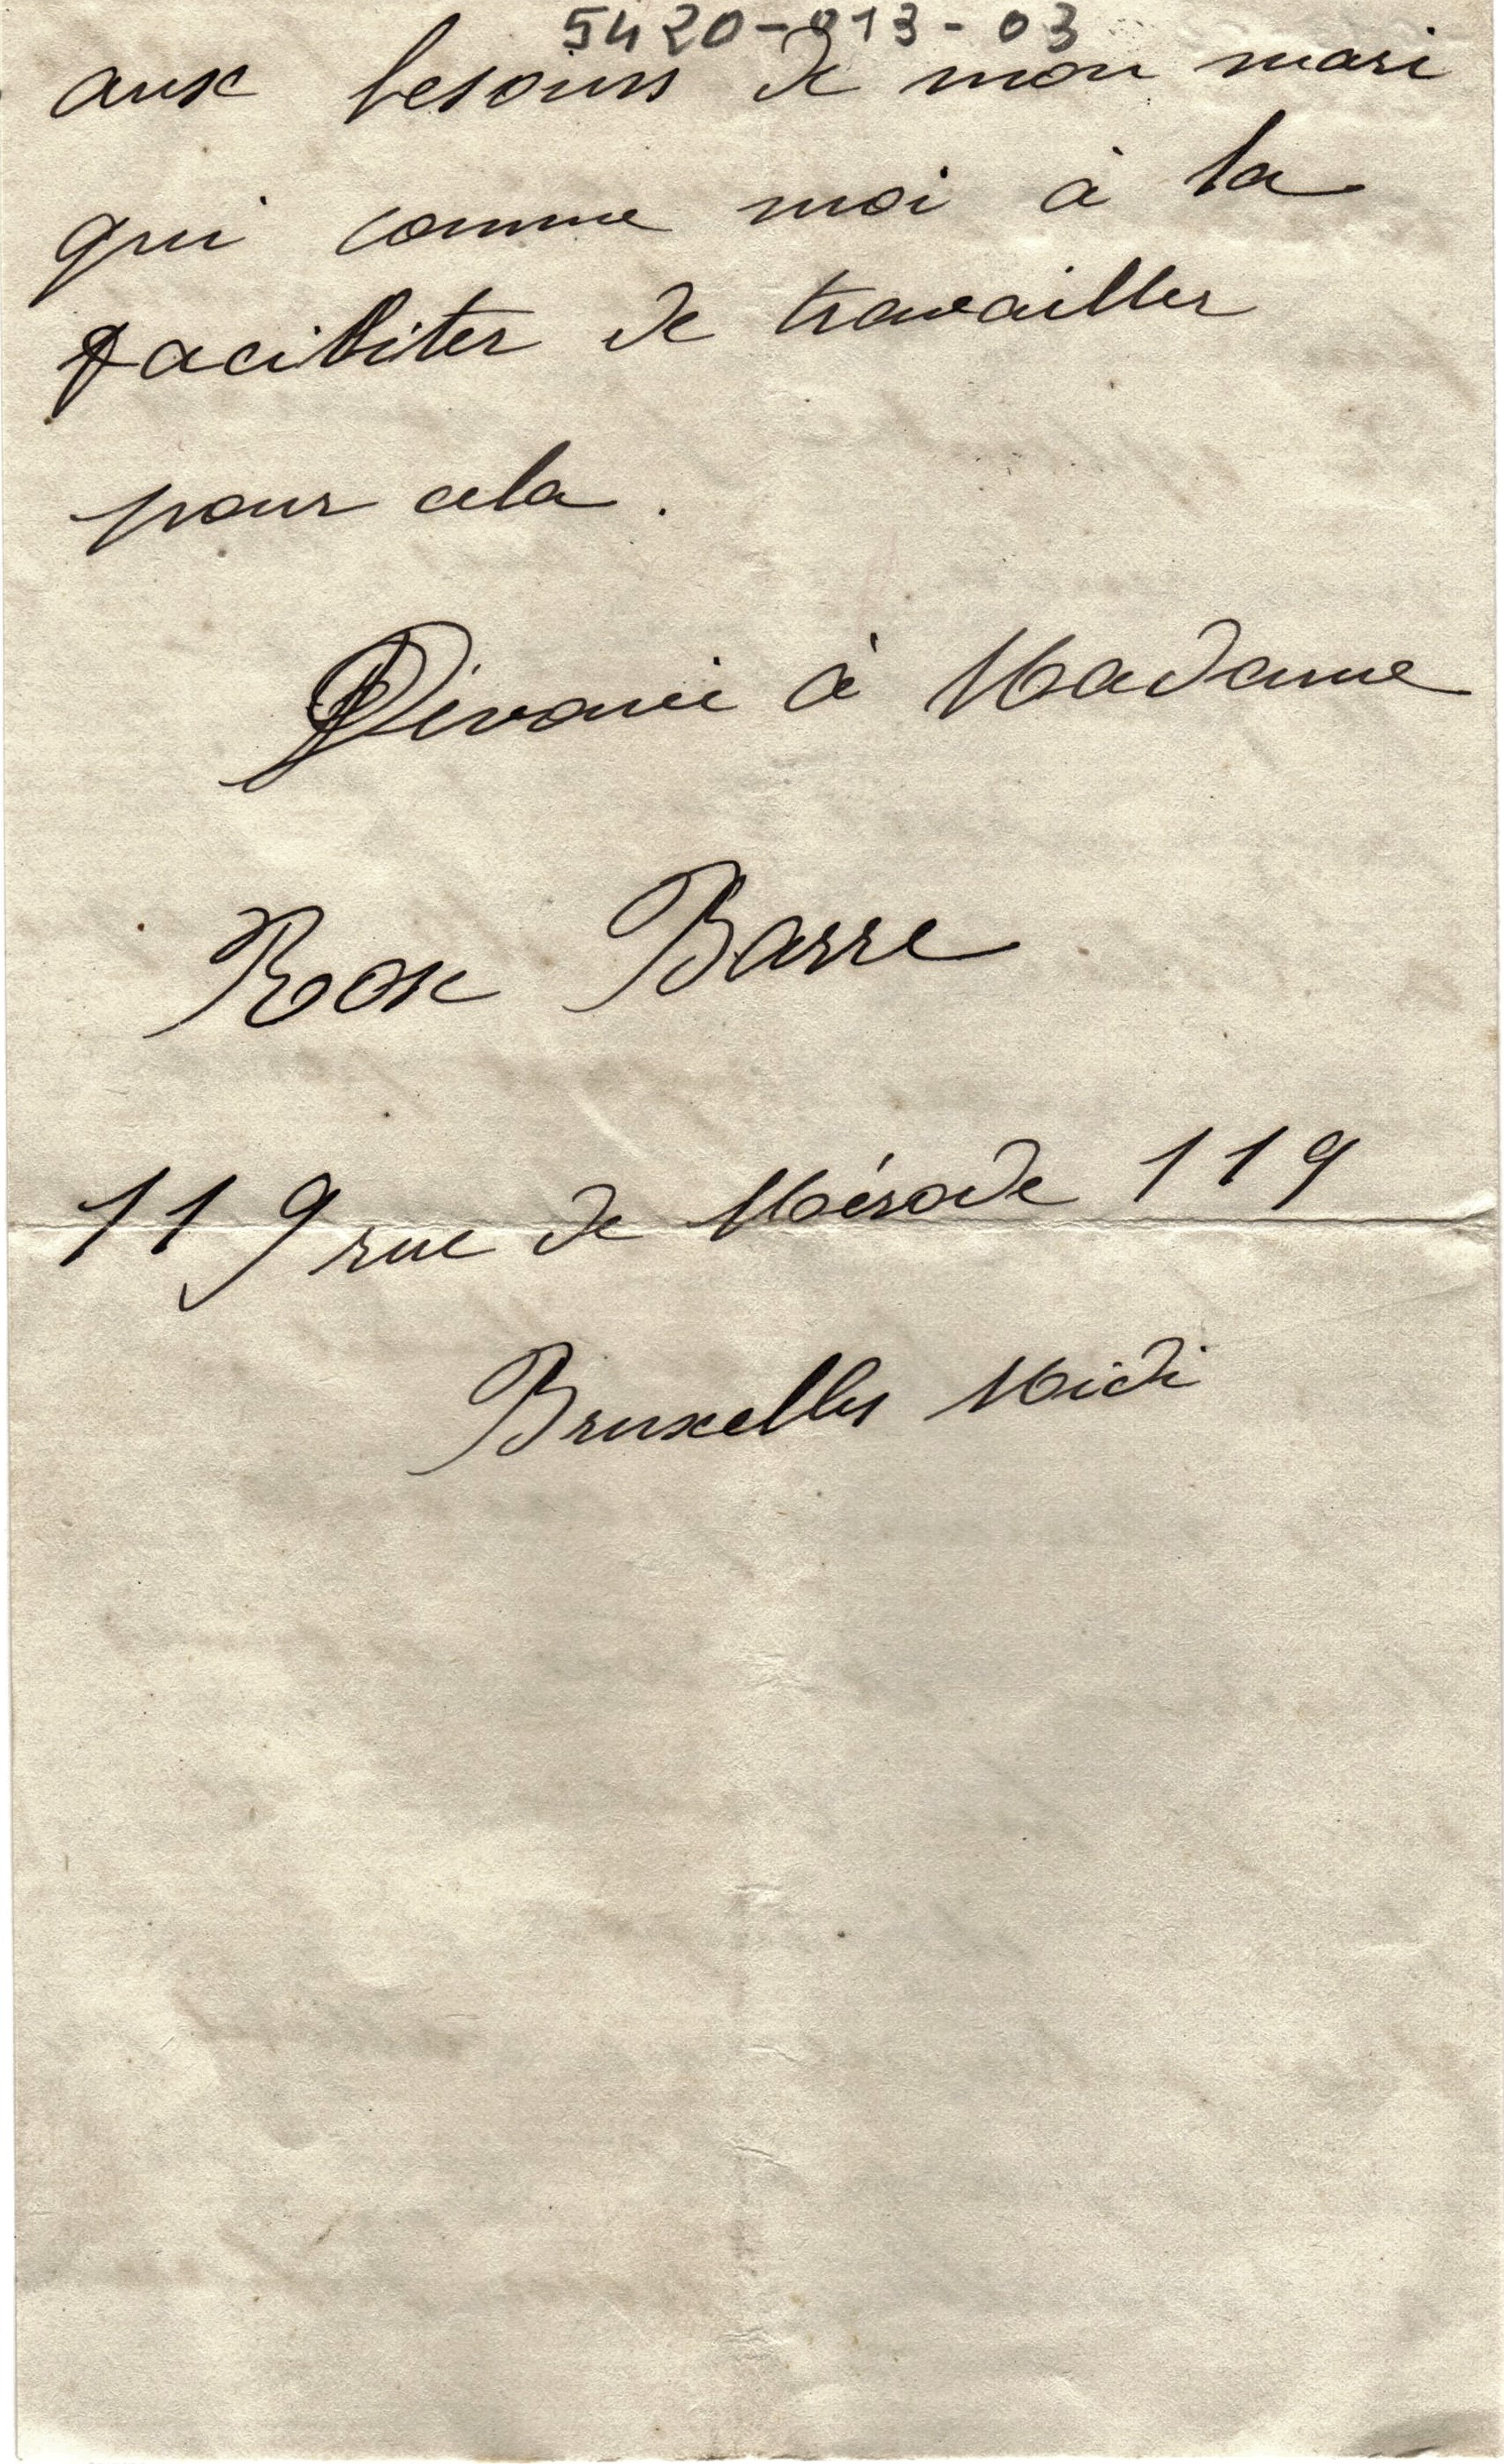 5420-013-03
aux besoins de mon mari
qui comme moi à la
faciliter de travailler
pour cela.
à Madame
Rose Barre
119 rue de Mérode 119
Bruxelles Midi